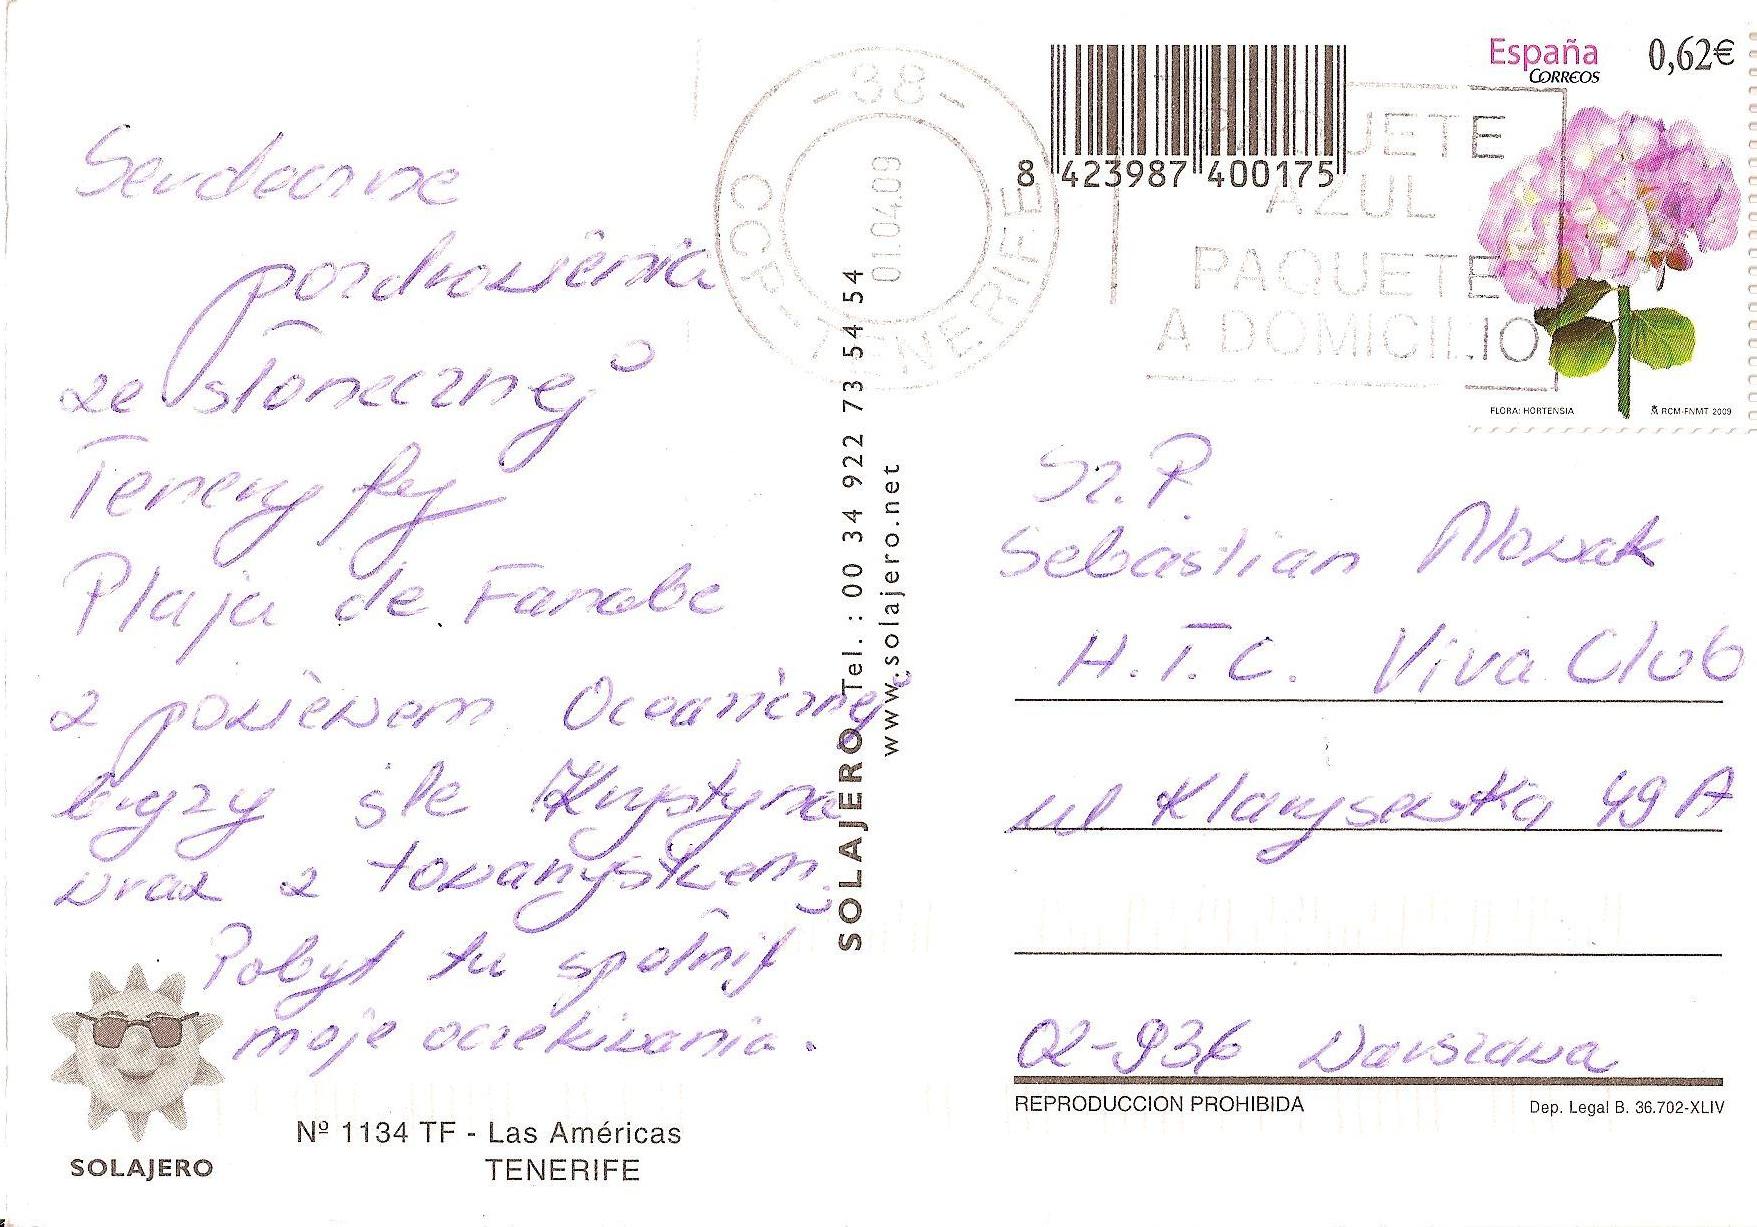 Serdeczne
pozdrowienia
ze słonecznej
Teneryfy
Plaja de Fanabe
z powiewem Oceanicznej
bryzy śle Krystyna
wraz z towarzystwem.
Pobyt tu spełnił
moje oczekiwania.
SOLAJERO
Nº 1134 TF - Las Américas
TENERIFE
SOLAJERO Tel. : 00 34 922 73 54 54
www.solajero.net
-38-
CCP - TENERIFE
01.04.09
8 423987 400175
PAQUETE
A DOMICILIO
AZUL
España 0,62€
CORREOS
FLORA: HORTENSIA
RCM-FNMT 2009
Sz. P.
Sebastian Nowak
H.T.C. Viva Club
ul Klarysewska 49 A
02-936 Warszawa
REPRODUCCION PROHIBIDA
Dep. Legal B. 36.702-XLIV